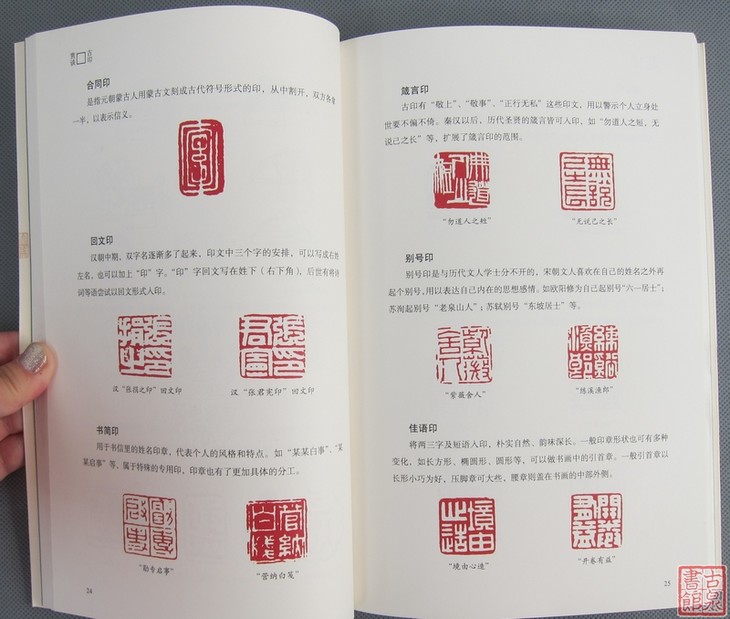 古印
合同印
是指元朝蒙古人用蒙古文刻成古代符号形式的印，从中割开，双方各拿
一半，以表示信义。
回文印
汉朝中期，双字名逐渐多了起来，印文中三个字的安排，可以写成右姓
左名，也可以加上“印”字。“印”字回文写在姓下（右下角），后世有将诗
词等语尝试以回文形式入印。
汉“张君宪印”回文印
书简印
用于书信里的姓名印章，代表个人的风格和特点。如“某某白事”、“某
某启事”等，属于特殊的专用印，印章也有了更加具体的分工。
“勤专启事”
“菅纳白笺”
24
箴言印
古印有“敬上”、“敬事”、“正行无私”这些印文，用以警示个人立身处
世要不偏不倚。秦汉以后，历代圣贤的箴言皆可入印，如“勿道人之短，无
说己之长”等，扩展了箴言印的范围。
“勿道人之短”
“无说己之长”
别号印
别号印是与历代文人学士分不开的，宋朝文人喜欢在自己的姓名之外再
起个别号，用以表达自己内在的思想感情。如欧阳修为自己起别号“六一居士”；
苏洵起别号“老泉山人”；苏轼别号“东坡居士”等。
“紫薇舍人”
“练溪渔郎”
佳语印
将两三字及短语入印，朴实自然、韵味深长。一般印章形状也可有多种
变化，如长方形、椭圆形、圆形等，可以做书画中的引首章。一般引首章以
长形小巧为好，压脚章可大些，腰章则盖在书画的中部外侧。
“境由心造”
“开卷有益”
25
古泉
書館